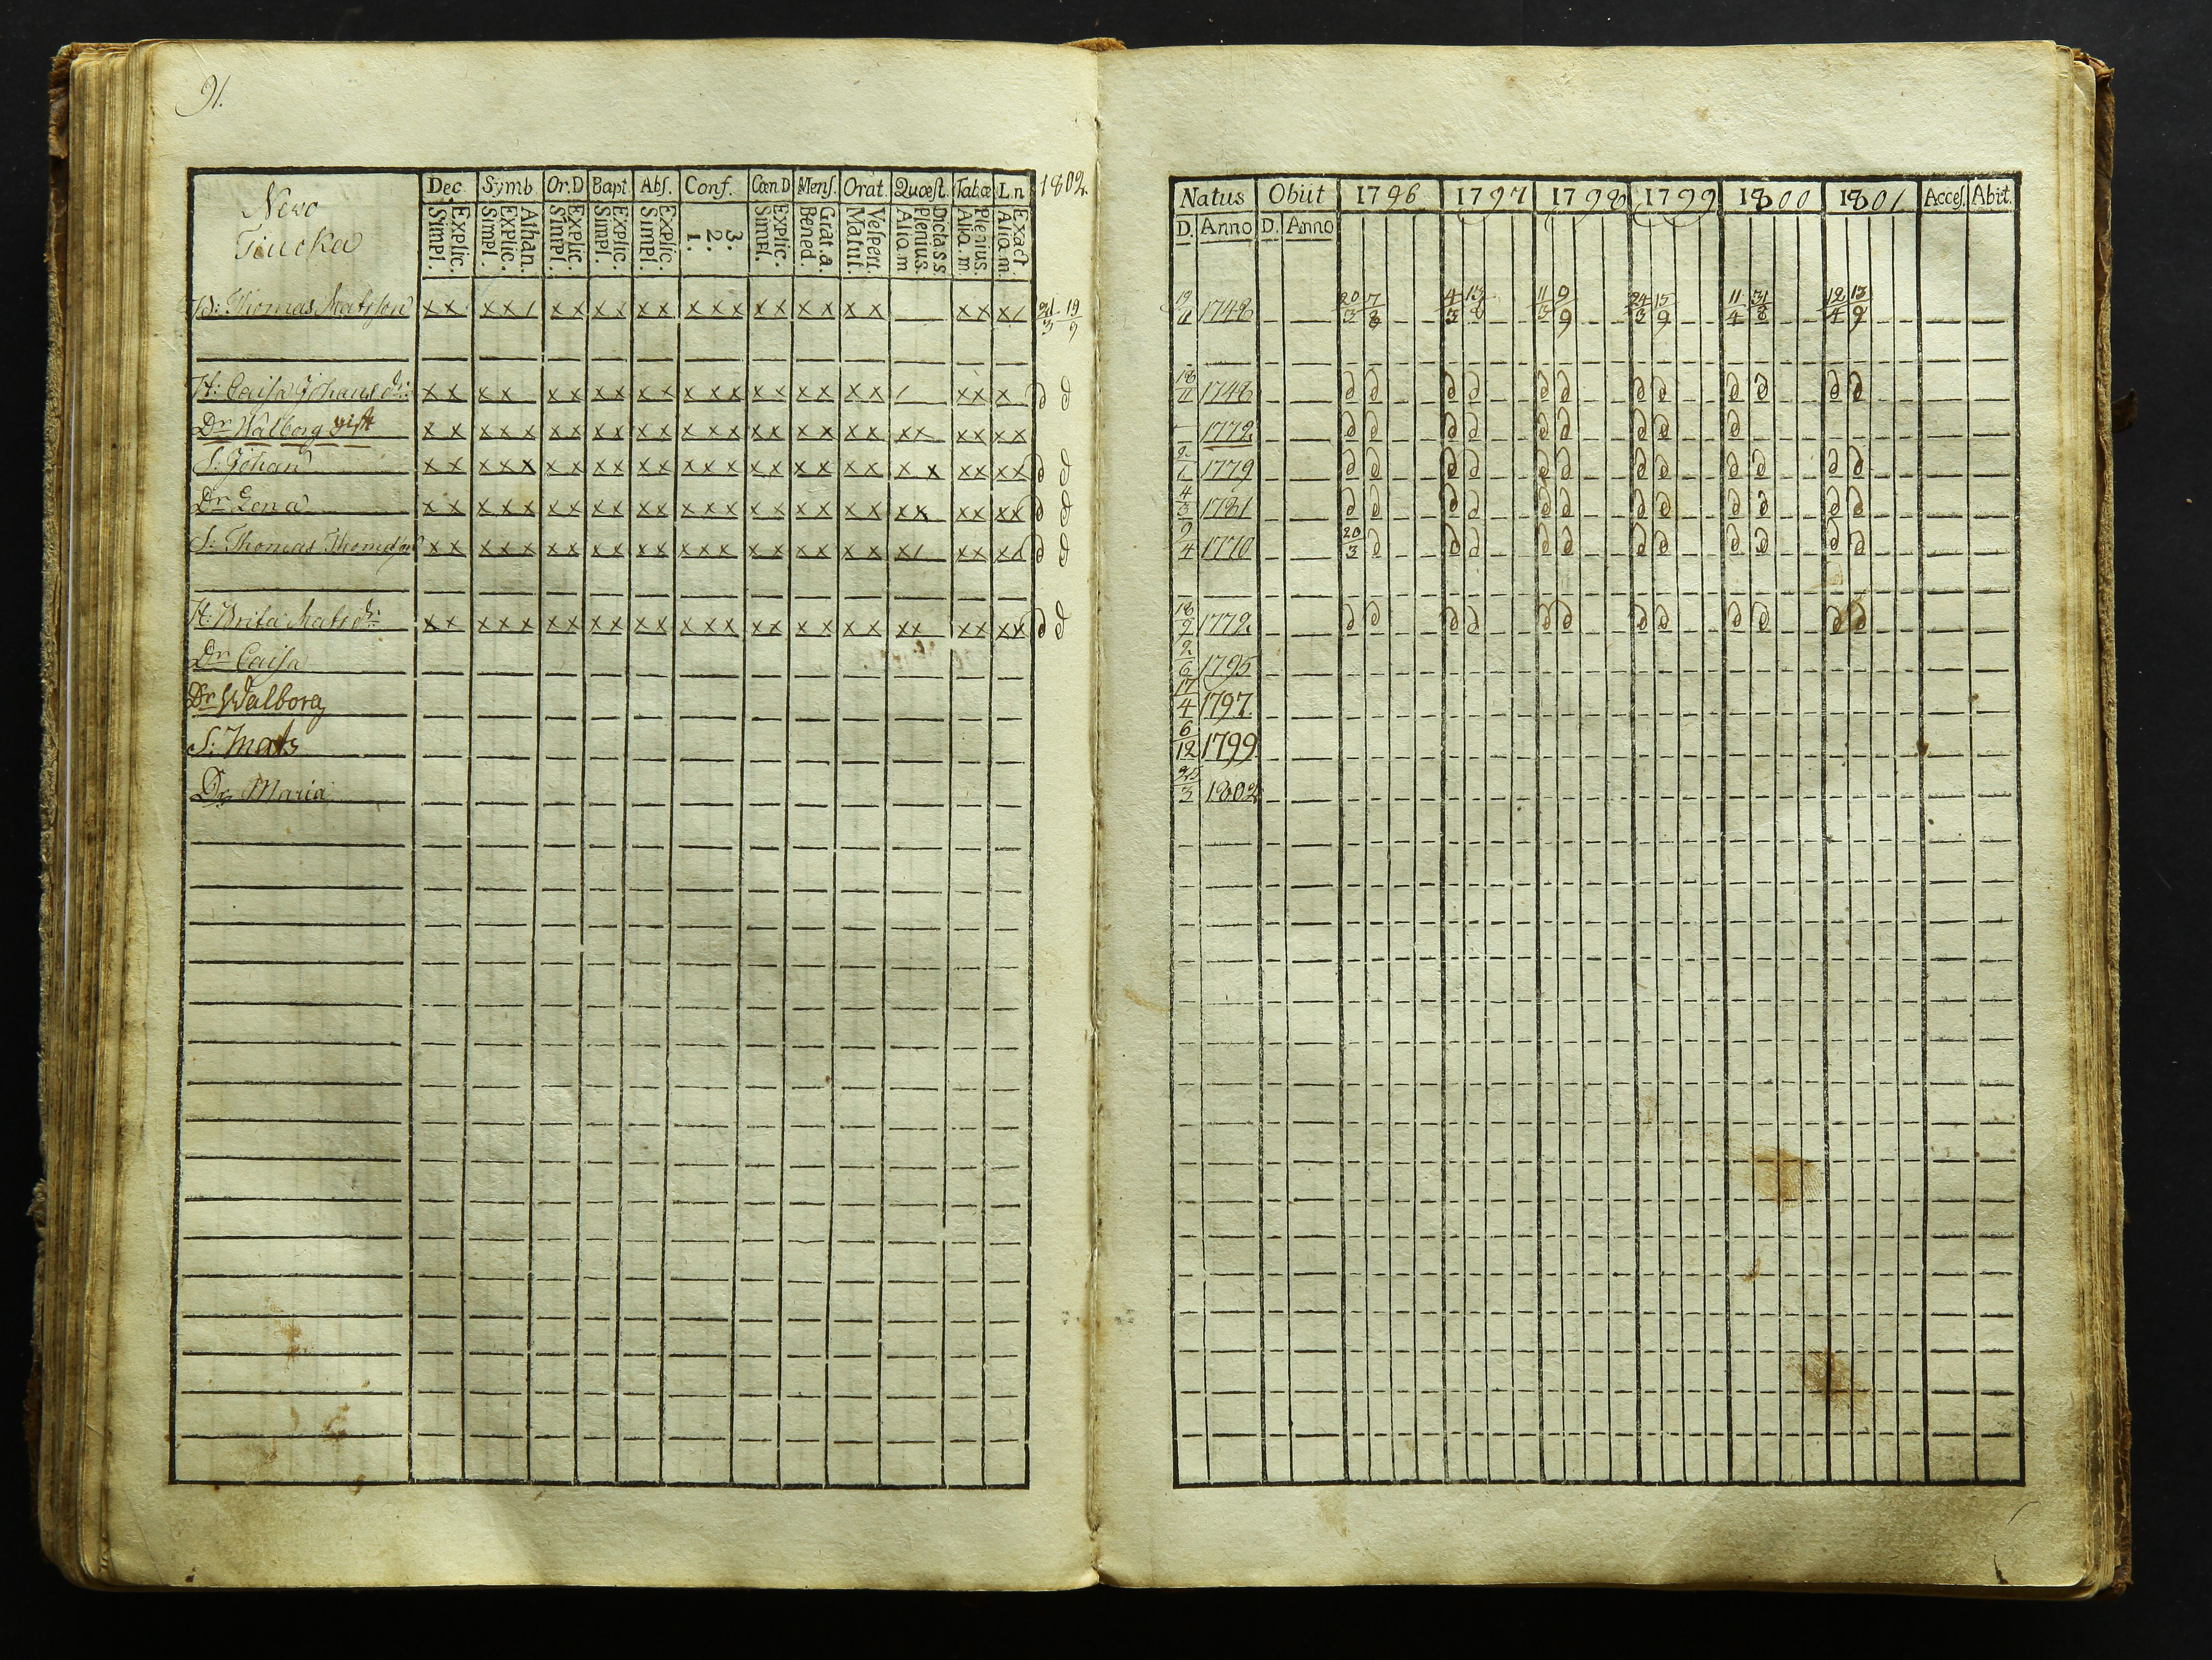 91.
Nevo
Tiucka
Dec. Symb. Or.D Bapt. Abſ. Conf. Cœn.D Menſ. Orat. Quæſt. Tabæ L.n 1802.
Simpl. Explic. Simpl. Explic. Athan. Simpl. Explic. Simpl. Explic. Simpl. Explic. 1. 2. 3. Simpl. Explic. Bened. Grat.a. Matut. Veſpert. Aliq.m Plenius. Dicta s s Aliq.m Plenius. Aliq.m Exact.
B: Thomas Matsson x x x x / x x x x x x x x x x x x x x x x x x x /
H: Caisa Johans dr: x x x x x x x x x x x x x x x x x x x / x x x
Dr Walborg gift x x x x x x x x x x x x x x x x x x x x x x x x x
S: Johan x x x x x x x x x x x x x x x x x x x x x x x x x
Dr Lena x x x x x x x x x x x x x x x x x x x x x x x x x
S: Thomas Thomsson x x x x x x x x x x x x x x x x x x x x x / x x x /
H: Brita Mats dr: x x x x x x x x x x x x x x x x x x x x x x x x x
Dr Caisa
Dr Walborg
S: Mats
Dr Maria
Natus Obiit 1796 1797 1798 1799 1800 1801 Acceſ. Abiit.
D. Anno D. Anno
1748 20/3 7/8 4/3 13/8 11/3 9/9 24/3 15/9 11/4 31/8 12/4 13/9
1748
1772
2/1 1779
4/3 1781
9/4 1770 20/3
18/2 1772
2/6 1795
17/4 1797
6/12 1799
25/3 1802